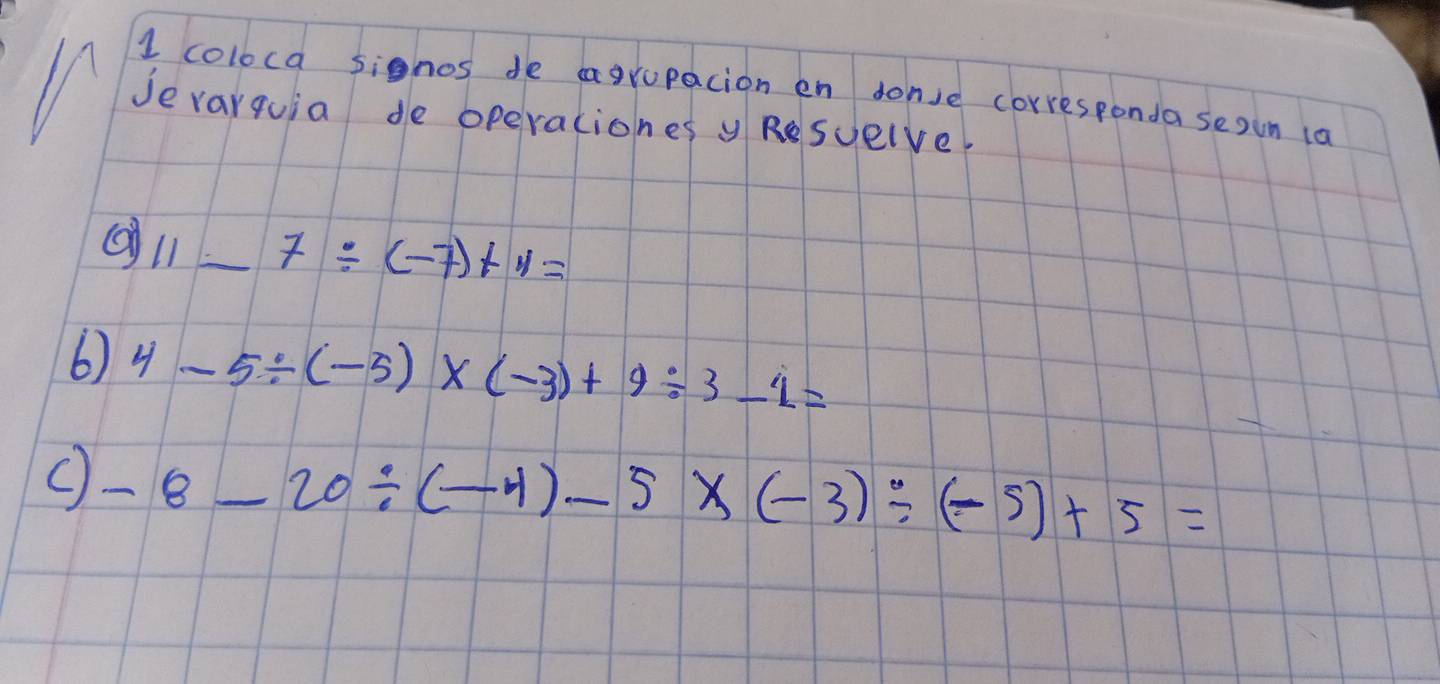 1 coloca signos de agrupacion en donde corresponda segun la
Jerarquia de operaciones y Resuelve.
a) 11 - 7 ÷ (-7) + 4 =
b) 4 - 5 ÷ (-5) x (-3) + 9 ÷ 3 - 1 =
c) - 8 - 20 ÷ (-4) - 5 x (-3) ÷ (-5) + 5 =